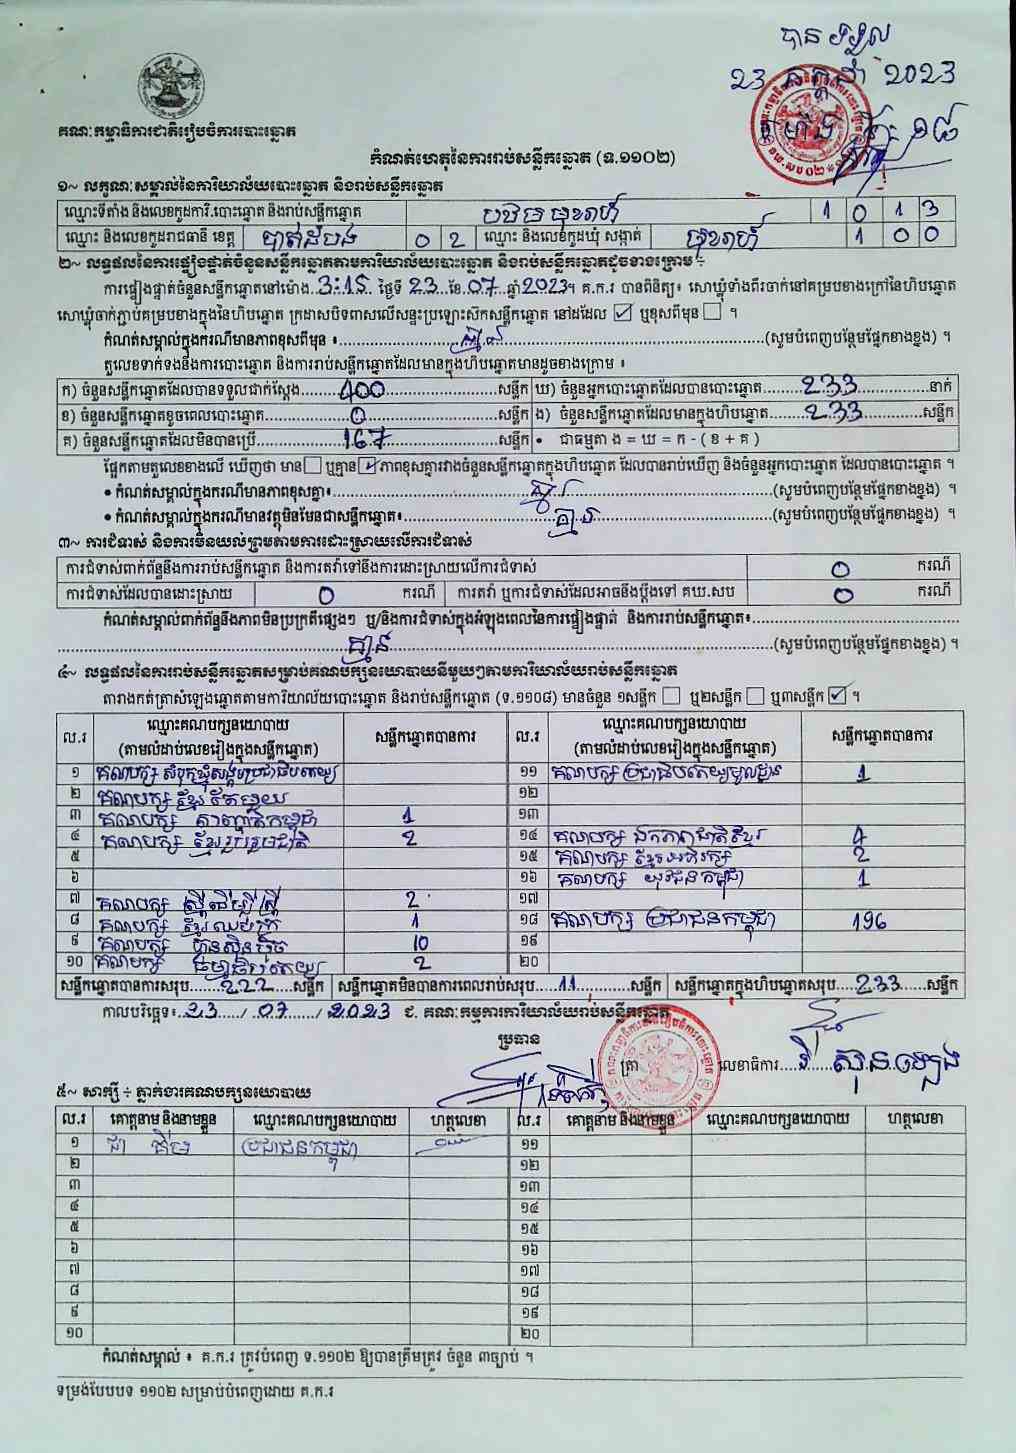 បានទទួល
23 កក្កដា 2023
គណៈកម្មាធិការជាតិរៀបចំការបោះឆ្នោត
កំណត់ហេតុនៃការរាប់សន្លឹកឆ្នោត (ទ.១១០២)
១~ លក្ខណៈសម្គាល់នៃការិយាល័យបោះឆ្នោត និងរាប់សន្លឹកឆ្នោត
ឈ្មោះទីតាំង និងលេខកូដការិ.បោះឆ្នោត និងរាប់សន្លឹកឆ្នោត 1 0 1 3
ឈ្មោះ និងលេខកូដរាជធានី ខេត្ត បាត់ដំបង 0 2 ឈ្មោះ និងលេខកូដឃុំ សង្កាត់ 1 0 0
២~ លទ្ធផលនៃការផ្ទៀងផ្ទាត់ចំនួនសន្លឹកឆ្នោតតាមការិយាល័យបោះឆ្នោត និងរាប់សន្លឹកឆ្នោតដូចខាងក្រោម ÷
ការផ្ទៀងផ្ទាត់ចំនួនសន្លឹកឆ្នោតនៅម៉ោង.3:15.. ថ្ងៃទី 23 ខែ.07 ឆ្នាំ2023។ គ.ក.រ បានពិនិត្យ៖ សោឃ្លុំទាំងពីរចាក់នៅគម្របខាងក្រៅនៃហិបឆ្នោត
សោឃ្លុំចាក់ភ្ជាប់គម្របខាងក្នុងនៃហិបឆ្នោត ក្រដាសបិទពាសលើសន្ទះប្រឡោះសឹកសន្លឹកឆ្នោត នៅដដែល ☑ ឬខុសពីមុន ☐ ។
កំណត់សម្គាល់ក្នុងករណីមានភាពខុសពីមុន ៖ គ្មាន (សូមបំពេញបន្ថែមផ្នែកខាងខ្នង) ។
តួលេខទាក់ទងនឹងការបោះឆ្នោត និងការរាប់សន្លឹកឆ្នោតដែលមានក្នុងហិបឆ្នោតមានដូចខាងក្រោម ៖
ក) ចំនួនសន្លឹកឆ្នោតដែលបានទទួលជាក់ស្តែង 400 សន្លឹក ឃ) ចំនួនអ្នកបោះឆ្នោតដែលបានបោះឆ្នោត 233 នាក់
ខ) ចំនួនសន្លឹកឆ្នោតខូចពេលបោះឆ្នោត 0 សន្លឹក ង) ចំនួនសន្លឹកឆ្នោតដែលមានក្នុងហិបឆ្នោត 233 សន្លឹក
គ) ចំនួនសន្លឹកឆ្នោតដែលមិនបានប្រើ 167 សន្លឹក • ជាធម្មតា ង = ឃ = ក - ( ខ + គ )
ផ្អែកតាមតួលេខខាងលើ ឃើញថា មាន ☐ ឬគ្មាន ☑ ភាពខុសគ្នារវាងចំនួនសន្លឹកឆ្នោតក្នុងហិបឆ្នោត ដែលបានរាប់ឃើញ និងចំនួនអ្នកបោះឆ្នោត ដែលបានបោះឆ្នោត ។
• កំណត់សម្គាល់ក្នុងករណីមានភាពខុសគ្នា៖ គ្មាន (សូមបំពេញបន្ថែមផ្នែកខាងខ្នង) ។
• កំណត់សម្គាល់ក្នុងករណីមានវត្ថុមិនមែនជាសន្លឹកឆ្នោត៖ គ្មាន (សូមបំពេញបន្ថែមផ្នែកខាងខ្នង) ។
៣~ ការជំទាស់ និងការមិនយល់ព្រមតាមការដោះស្រាយលើការជំទាស់
ការជំទាស់ពាក់ព័ន្ធនឹងការរាប់សន្លឹកឆ្នោត និងការតវ៉ាទៅនឹងការដោះស្រាយលើការជំទាស់ 0 ករណី
ការជំទាស់ដែលបានដោះស្រាយ 0 ករណី ការតវ៉ា ឬការជំទាស់ដែលអាចនឹងប្តឹងទៅ គឃ.សប 0 ករណី
កំណត់សម្គាល់ពាក់ព័ន្ធនឹងភាពមិនប្រក្រតីផ្សេងៗ ឬ/និងការជំទាស់ក្នុងអំឡុងពេលនៃការផ្ទៀងផ្ទាត់ និងការរាប់សន្លឹកឆ្នោត៖
គ្មាន (សូមបំពេញបន្ថែមផ្នែកខាងខ្នង) ។
៤~ លទ្ធផលនៃការរាប់សន្លឹកឆ្នោតសម្រាប់គណបក្សនយោបាយនីមួយៗតាមការិយាល័យរាប់សន្លឹកឆ្នោត
តារាងកត់ត្រាសំឡេងឆ្នោតតាមការិយាល័យបោះឆ្នោត និងរាប់សន្លឹកឆ្នោត (ទ.១១០៨) មានចំនួន ១សន្លឹក ☐ ឬ២សន្លឹក ☐ ឬ៣សន្លឹក ☑ ។
ល.រ ឈ្មោះគណបក្សនយោបាយ (តាមលំដាប់លេខរៀងក្នុងសន្លឹកឆ្នោត) សន្លឹកឆ្នោតបានការ ល.រ ឈ្មោះគណបក្សនយោបាយ (តាមលំដាប់លេខរៀងក្នុងសន្លឹកឆ្នោត) សន្លឹកឆ្នោតបានការ
១ គណបក្ស សំបុកឃ្មុំសង្គមប្រជាធិបតេយ្យ ១១ គណបក្ស ប្រជាធិបតេយ្យមូលដ្ឋាន 1
២ គណបក្ស ខ្មែរតែមួយ ១២
៣ គណបក្ស មាតាជាតិកម្ពុជា 1 ១៣
៤ គណបក្ស ខ្មែររួបរួមជាតិ 2 ១៤ គណបក្ស ឯកភាពជាតិខ្មែរ 4
៥ ១៥ គណបក្ស ខ្មែរអភិរក្ស 2
៦ ១៦ គណបក្ស យុវជនកម្ពុជា 1
៧ គណបក្ស ស្រ្តីដើម្បីស្រ្តី 2 ១៧
៨ គណបក្ស ខ្មែរឈប់ក្រ 1 ១៨ គណបក្ស ប្រជាជនកម្ពុជា 196
៩ គណបក្ស ហ្វ៊ុនស៊ិនប៉ិច 10 ១៩
១០ គណបក្ស ធម្មាធិបតេយ្យ 2 ២០
សន្លឹកឆ្នោតបានការសរុប 222 សន្លឹក សន្លឹកឆ្នោតមិនបានការពេលរាប់សរុប 11 សន្លឹក សន្លឹកឆ្នោតក្នុងហិបឆ្នោតសរុប 233 សន្លឹក
កាលបរិច្ឆេទ៖ 23 / 07 / 2023 ជ. គណៈកម្មការការិយាល័យរាប់សន្លឹកឆ្នោត
ប្រធាន
ត្រា លេខាធិការ
៥~ សាក្សី ÷ ភ្នាក់ងារគណបក្សនយោបាយ
ល.រ គោត្តនាម និងនាមខ្លួន ឈ្មោះគណបក្សនយោបាយ ហត្ថលេខា ល.រ គោត្តនាម និងនាមខ្លួន ឈ្មោះគណបក្សនយោបាយ ហត្ថលេខា
១ ប្រជាជនកម្ពុជា ១១
២ ១២
៣ ១៣
៤ ១៤
៥ ១៥
៦ ១៦
៧ ១៧
៨ ១៨
៩ ១៩
១០ ២០
កំណត់សម្គាល់ ៖ គ.ក.រ ត្រូវបំពេញ ទ.១១០២ ឱ្យបានត្រឹមត្រូវ ចំនួន ៣ច្បាប់ ។
ទម្រង់បែបបទ ១១០២ សម្រាប់បំពេញដោយ គ.ក.រ